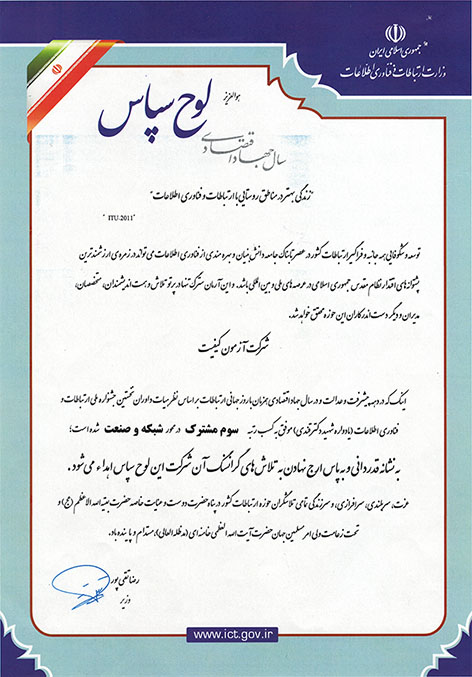 جمهوری اسلامی ایران
وزارت ارتباطات و فناوری اطلاعات
هوالعزیز
لوح سپاس
سال جهاد اقتصادی
"زندگی بهتر در مناطق روستایی با ارتباطات و فناوری اطلاعات"
"ITU-2011"
توسعه و شکوفایی همه جانبه و فراگیر ارتباطات کشور در عصر تابناک جامعه دانش بنیان و بهره مندی از فناوری اطلاعات می تواند در زمره ی ارزشمندترین
پشتوانه های اقتدار نظام مقدس جمهوری اسلامی در عرصه های ملی و بین المللی باشد. و این آرمان سترگ تنها در پرتو تلاش و همت اندیشمندان، متخصصان،
مدیران و دیگر دست اندرکاران این حوزه محقق خواهد شد.
شرکت آزمون کیفیت
اینک که در دهه پیشرفت و عدالت و در سال جهاد اقتصادی همزمان با روز جهانی ارتباطات بر اساس نظر هیات داوران نخستین جشنواره ملی ارتباطات و
فناوری اطلاعات (یادواره شهید دکتر قندی) موفق به کسب رتبه سوم مشترک در محور شبکه و صنعت شده است؛
به نشانه قدردانی و به پاس ارج نهادن به تلاش های گرانسنگ آن شرکت این لوح سپاس اهدا می شود.
عزت، سربلندی، سرافرازی، و سرزندگی تمامی تلاشگران حوزه ارتباطات کشور در پناه حضرت دوست و عنایات خاصه حضرت بقیه الله الاعظم (عج) و
تحت زعامت ولی امر مسلمین جهان حضرت آیت الله العظمی خامنه ای (مدظله العالی)، مستدام و پاینده باد.
رضا تقی پور
وزیر
www.ict.gov.ir